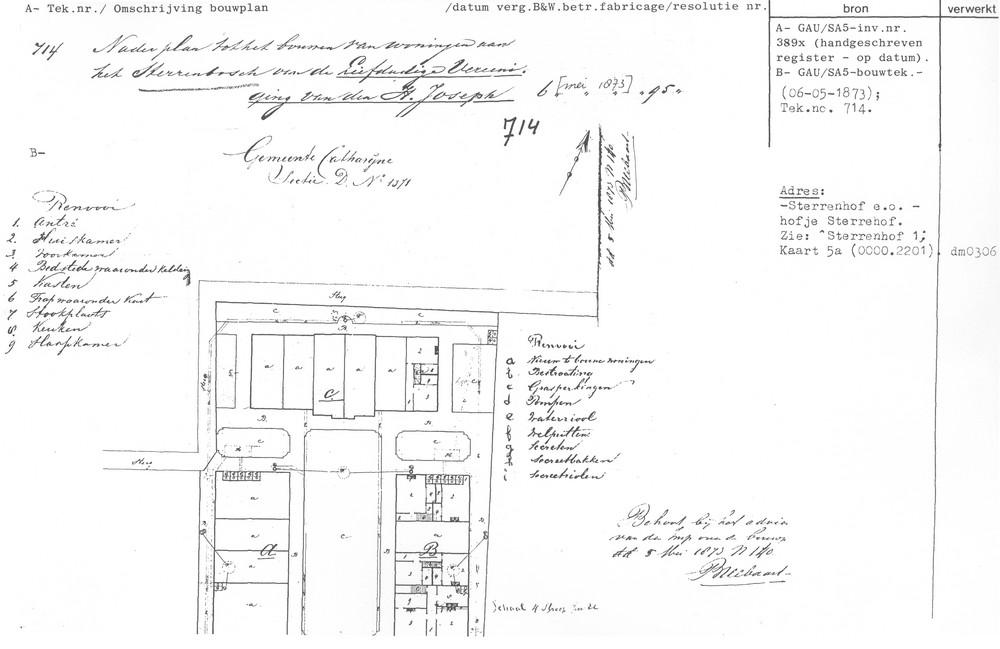 A- Tek.nr./ Omschrijving bouwplan /datum verg.B&W.betr.fabricage/resolutie nr.
bron
verwerkt
714 Nader plan tot het bouwen van woningen aan
het Sterrenbosch van de Liefdadige Vereeni-
ging van den H. Joseph 6 [mei 1873] "95"
A- GAU/SA5-inv.nr.
389x (handgeschreven
register - op datum).
B- GAU/SA5-bouwtek.-
(06-05-1873);
Tek.nc. 714.
714
B-
Gemeente Catharijne
Sectie D. No 1371
dd 5 Mei 1873 N 140
Adres:
-Sterrenhof e.o. -
hofje Sterrehof.
Zie: ^Sterrenhof 1;
Kaart 5a (0000.2201).
dm0306
Renvooi
1. Antré
2. Huiskamer
3. Voorkamer
4 Bedstede waaronder kelder
5 Kasten
6 Trap waaronder Kast
7 Stookplaats
8. Keuken
9 Slaapkamer
Steeg
Steeg
Steeg
C
A
B
Renvooi
a Nieuw te bouwe woningen
b Bestrating
c Grasperkingen
d Pompen
e Waterriool
f Welputten
g Secreten
h Secreetbakken
i Secreetriolen
Behoort bij het advies
van de
dd 5 Mei 1873 N 140
Schaal